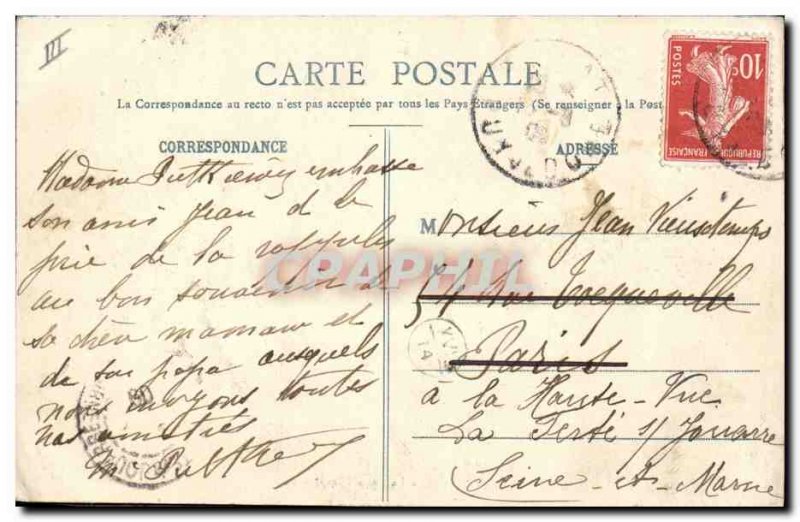 III
CARTE POSTALE
La Correspondance au recto n'est pas acceptée par tous les Pays Étrangers (Se renseigner à la Post
CORRESPONDANCE
ADRESSE
POSTES
10c
REPUBLIQUE FRANÇAISE
Madame embrasse
son ami Jean & le
prie de la rappeler
au bon souvenir de
sa chère maman et
de son papa auxquels
nous envoyons toutes
nos amitiés
Monsieur Jean Vieuxtemps
54 Rue Tocqueville
Paris
à la Haute-Vue
La Ferté s/ Jouarre
Seine-et-Marne
CPAPHIL